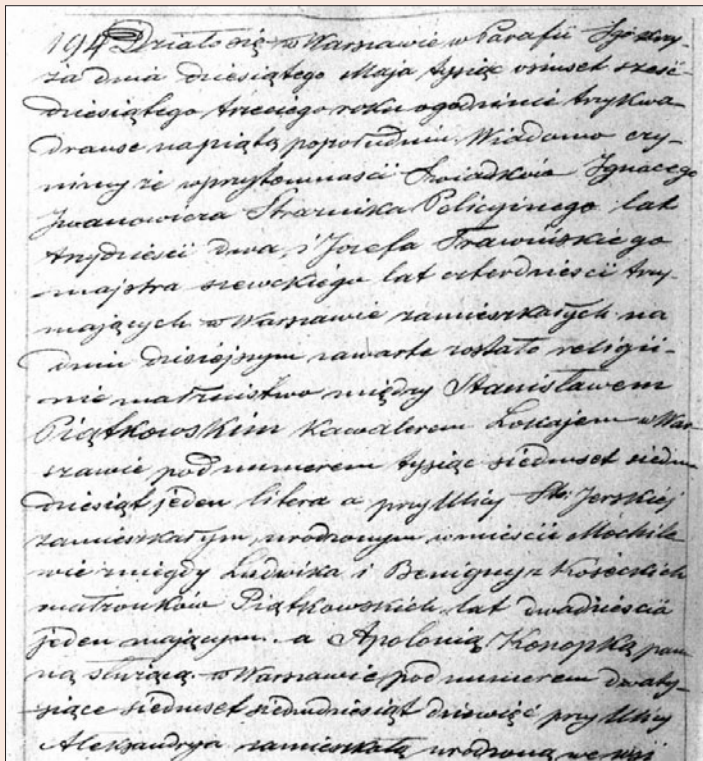 194 Działo się w Warszawie w Parafii Sgo Krzy-
ża dnia dziesiątego Maja tysiąc ośmset sześć-
dziesiątego trzeciego roku o godzinie trzy kwa-
dranse na piątą popołudniu. Wiadomo czy-
nimy że w przytomności Świadków Ignacego
Iwanowicza Strażnika Policyjnego lat
trzydzieści dwa, i Józefa Trawińskiego
majstra szewckiego lat czterdzieści trzy
mających w Warszawie zamieszkałych na
dniu dzisiejszym zawarte zostało religij-
nie małżeństwo między Stanisławem
Piątkowskim Kawalerem Lokajem w War-
szawie pod numerem tysiąc siedmset siedm
dziesiąt jeden litera a przy Ulicy Sto Jerskiej
zamieszkałym, urodzonym w mieście Mochile
wie z niegdy Ludwika i Benigny z Koseckich
małżonków Piątkowskich lat dwadzieścia
jeden mającym. a Apolonią Konopką pan
ną służącą w Warszawie pod numerem dwa ty-
siące siedmset siedmdziesiąt dziewięć przy Ulicy
Aleksandrya zamieszkałą urodzoną we wsi